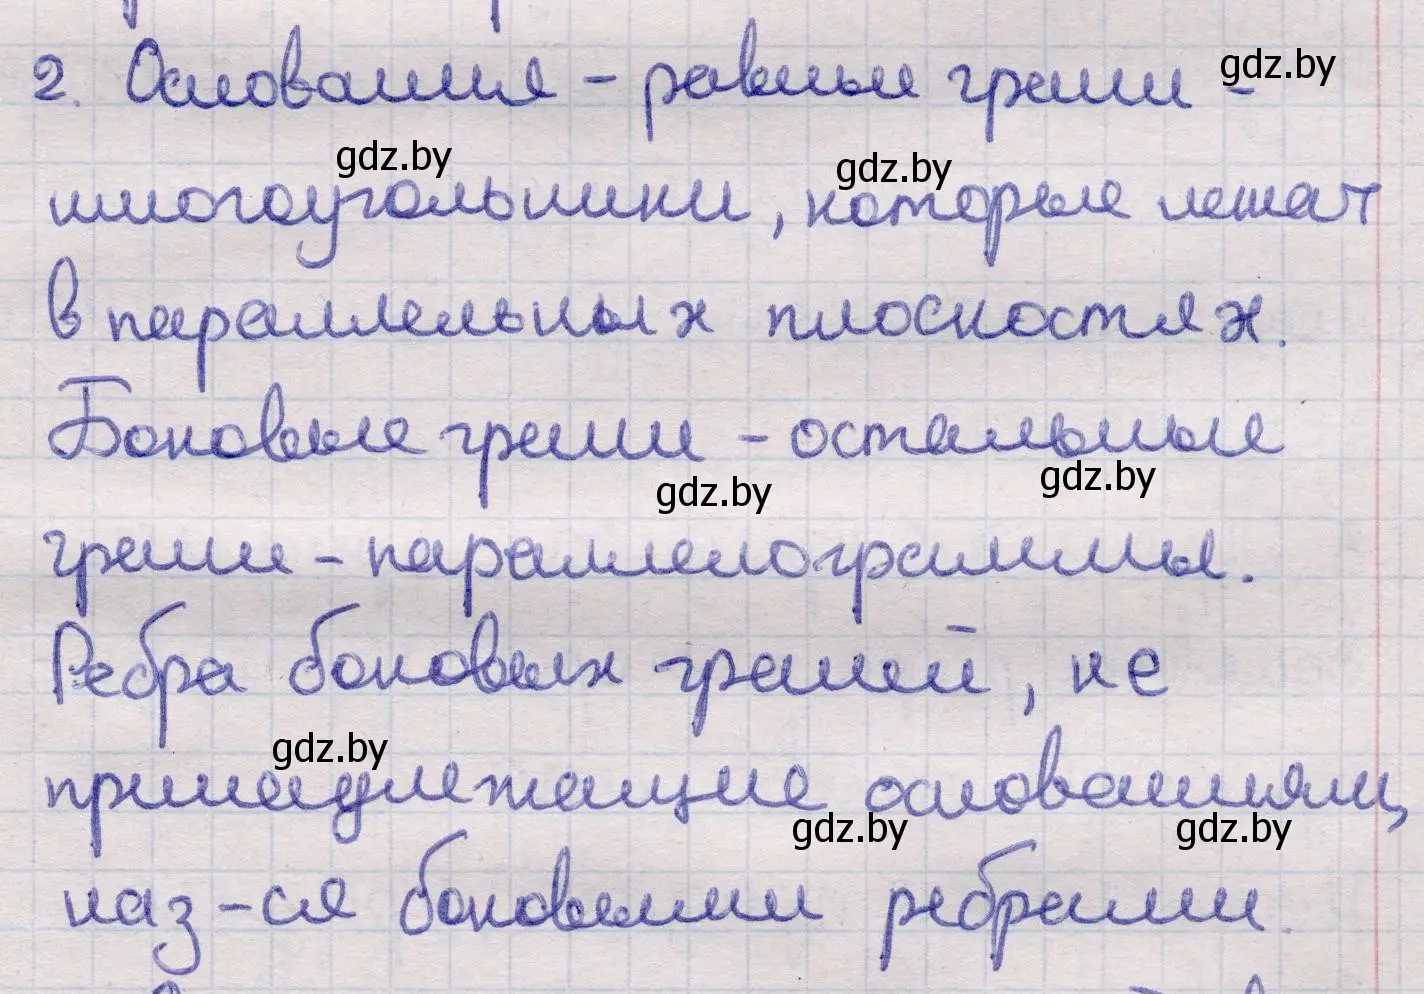 2. Основания - равные грани - gdz.by
gdz.by gdz.by
многоугольники, которые лежат
в параллельных плоскостях.
Боковые грани - остальные
gdz.by gdz.by
грани - параллелограммы.
Ребра боковых граней, не
gdz.by
принадлежащие основаниям,
gdz.by gdz.by
наз-ся боковыми ребрами.